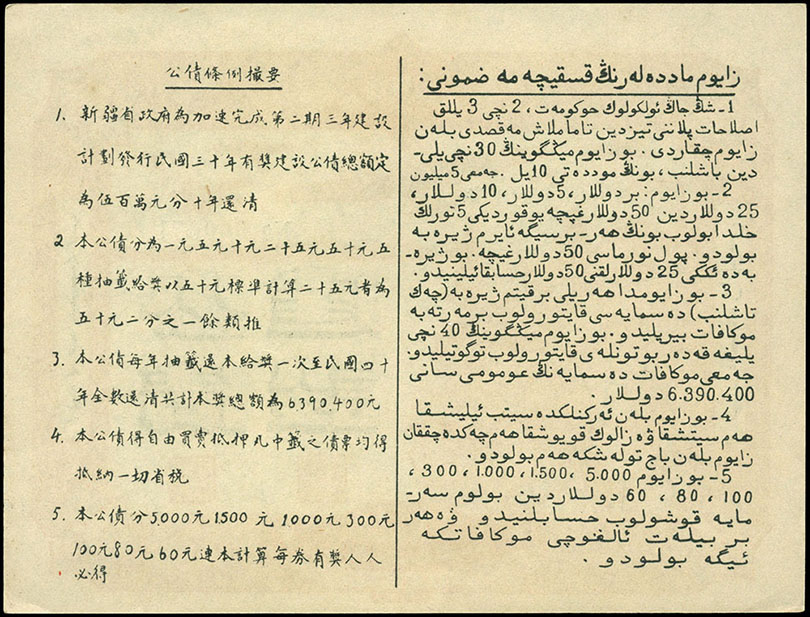 公債條例撮要
1. 新疆省政府為加速完成第二期三年建設
計劃發行民國三十年有奬建設公債總額定
為伍百萬元分十年還清
2 本公債分為一元五元十元二十五元五十元五
種抽籤給奬以五十元標準計算二十五元者為
五十元二分之一餘類推
3. 本公債每年抽籤還本給奬一次至民國四十
年全數還清共計本奬總額為6390.400元
4. 本公債得自由買賣抵押凡中籤之債票均得
抵納一切省税
5. 本公債分5.000元1500元1000元300元
100元80元60元連本計算每券有奬人人
必得
زايوم ماددەلەرنىڭ قسقيچە مەضمونی:
1_ شڭ جاڭ ئولكولوك حوكومەت، 2 نچی 3 يللق
اصلاحات پلاننی تيزدين تاماملاش مەقصدی بلەن
زايوم چقاردی. بو زايوم مىڭگوينىڭ 30 نچی يلی-
دين باشلنب، بونىڭ موددەتی 10 يل. جمعی 5 ميليون
2_ بو زايوم: بر دوللار، 5 دوللار، 10 دوللار،
25 دوللاردين 50 دوللارغيچە يوقوردیكی 5 تورلك
خلدا بولوب بونىڭ هەر_ برسيگە ئايرم ژيرە بە
بولودو. پول نورماسی 50 دوللارغيچە. بو ژيرە-
بەدە ئككی 25 دوللارلقنی 50 دوللار حسابقا ئيلينيدو.
3_ بو زايومدا هەر يلی بر قيتم ژيرە بە (چەك
تاشلنب) دەسمايەسی قايتورولوب بر مەرتە بە
موكافات بيريليدو. بو زايوم مىڭگوينىڭ 40 نچی
يليغە قەدەر بوتونلەی قايتورولوب توگوتيليدو.
جەمعی موكافات دەسمايەنىڭ عومومی سانی
6.390.400 دوللار.
4_ بو زايوم بلەن ئەركنلكدە سيتب ئيليشقا
هەم سيتشقا ۋە زالوك قويوشقا هەم چەكدە چققان
زايوم بلەن باج تولەشكە هەم بولودو.
5_ بو زايوم 5.000، 1.500، 1.000، 300،
100، 80، 60 دوللاردين بولوم سەر-
مايە قوشولوب حسابلنيدو ۋە هەر
بر بيلەت ئالغوچی موكافاتكە
ئيگە بولودو.